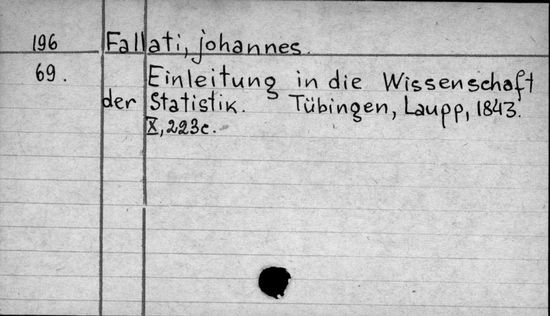 196 Fallati, johannes.
69. Einleitung in die Wissenschaft
der Statistik. Tübingen, Laupp, 1843.
X, 223c.